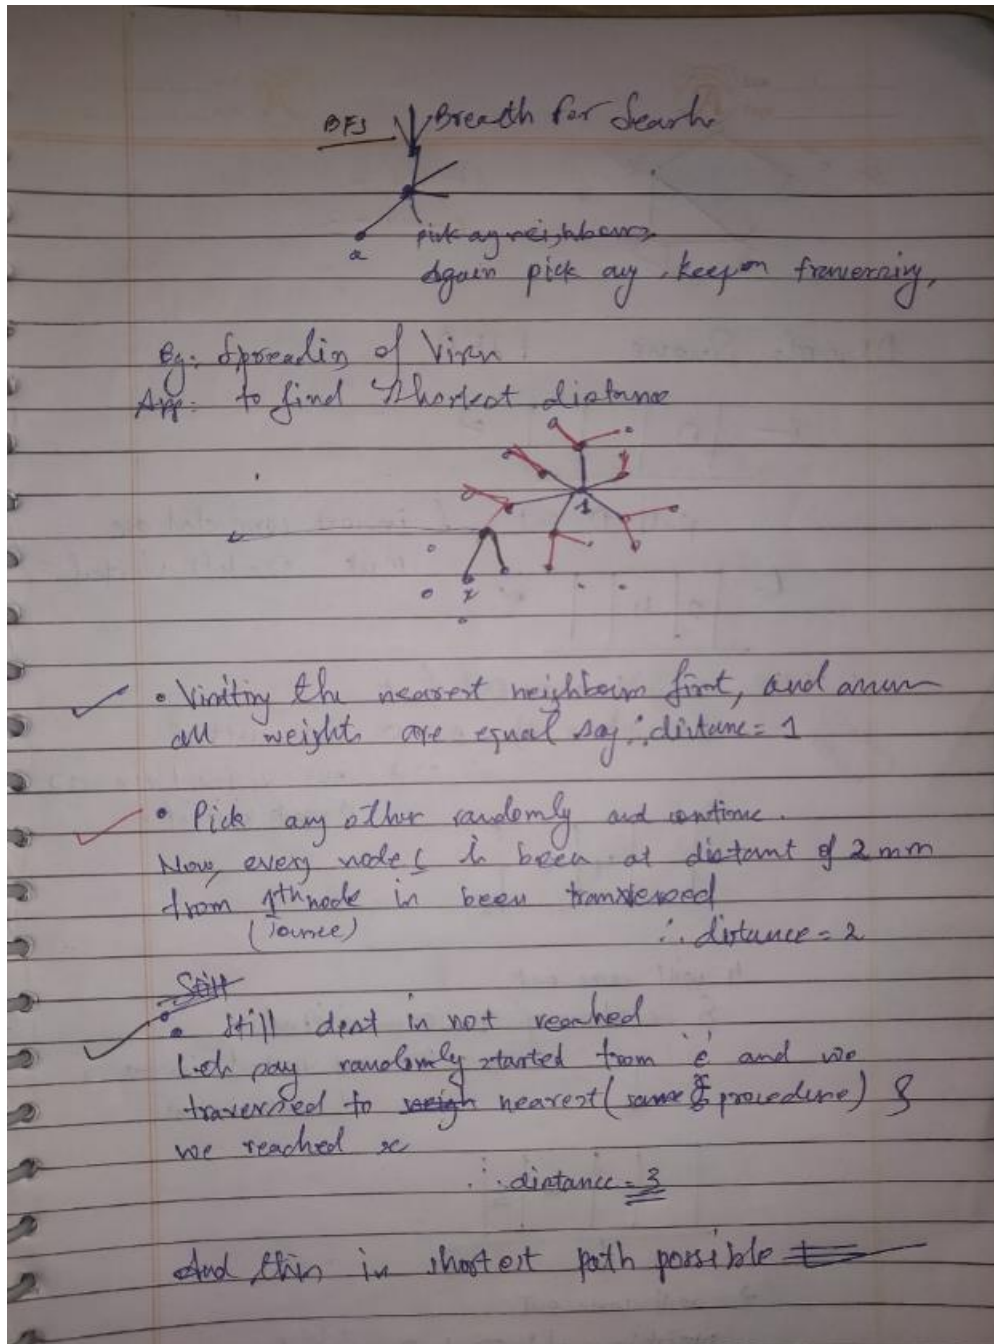 BFS Breath for Search
a
pick any neighbours,
Again pick any, keep on traversing,
Eg: Spreading of Virus
App: to find Shortest distance
1
x
• Visiting the nearest neighbours first, and assume
all weights are equal say ∴ distance = 1
• Pick any other randomly and continue.
Now, every nodes is been at distant of 2 mm
from 1th node is been transversed
(source)
∴ distance = 2
Still
• Still dest is not reached
Lets say randomly started from 'e' and we
traversed to weigh nearest (same procedure) &
we reached x
∴ distance = 3
And this is shortest path possible